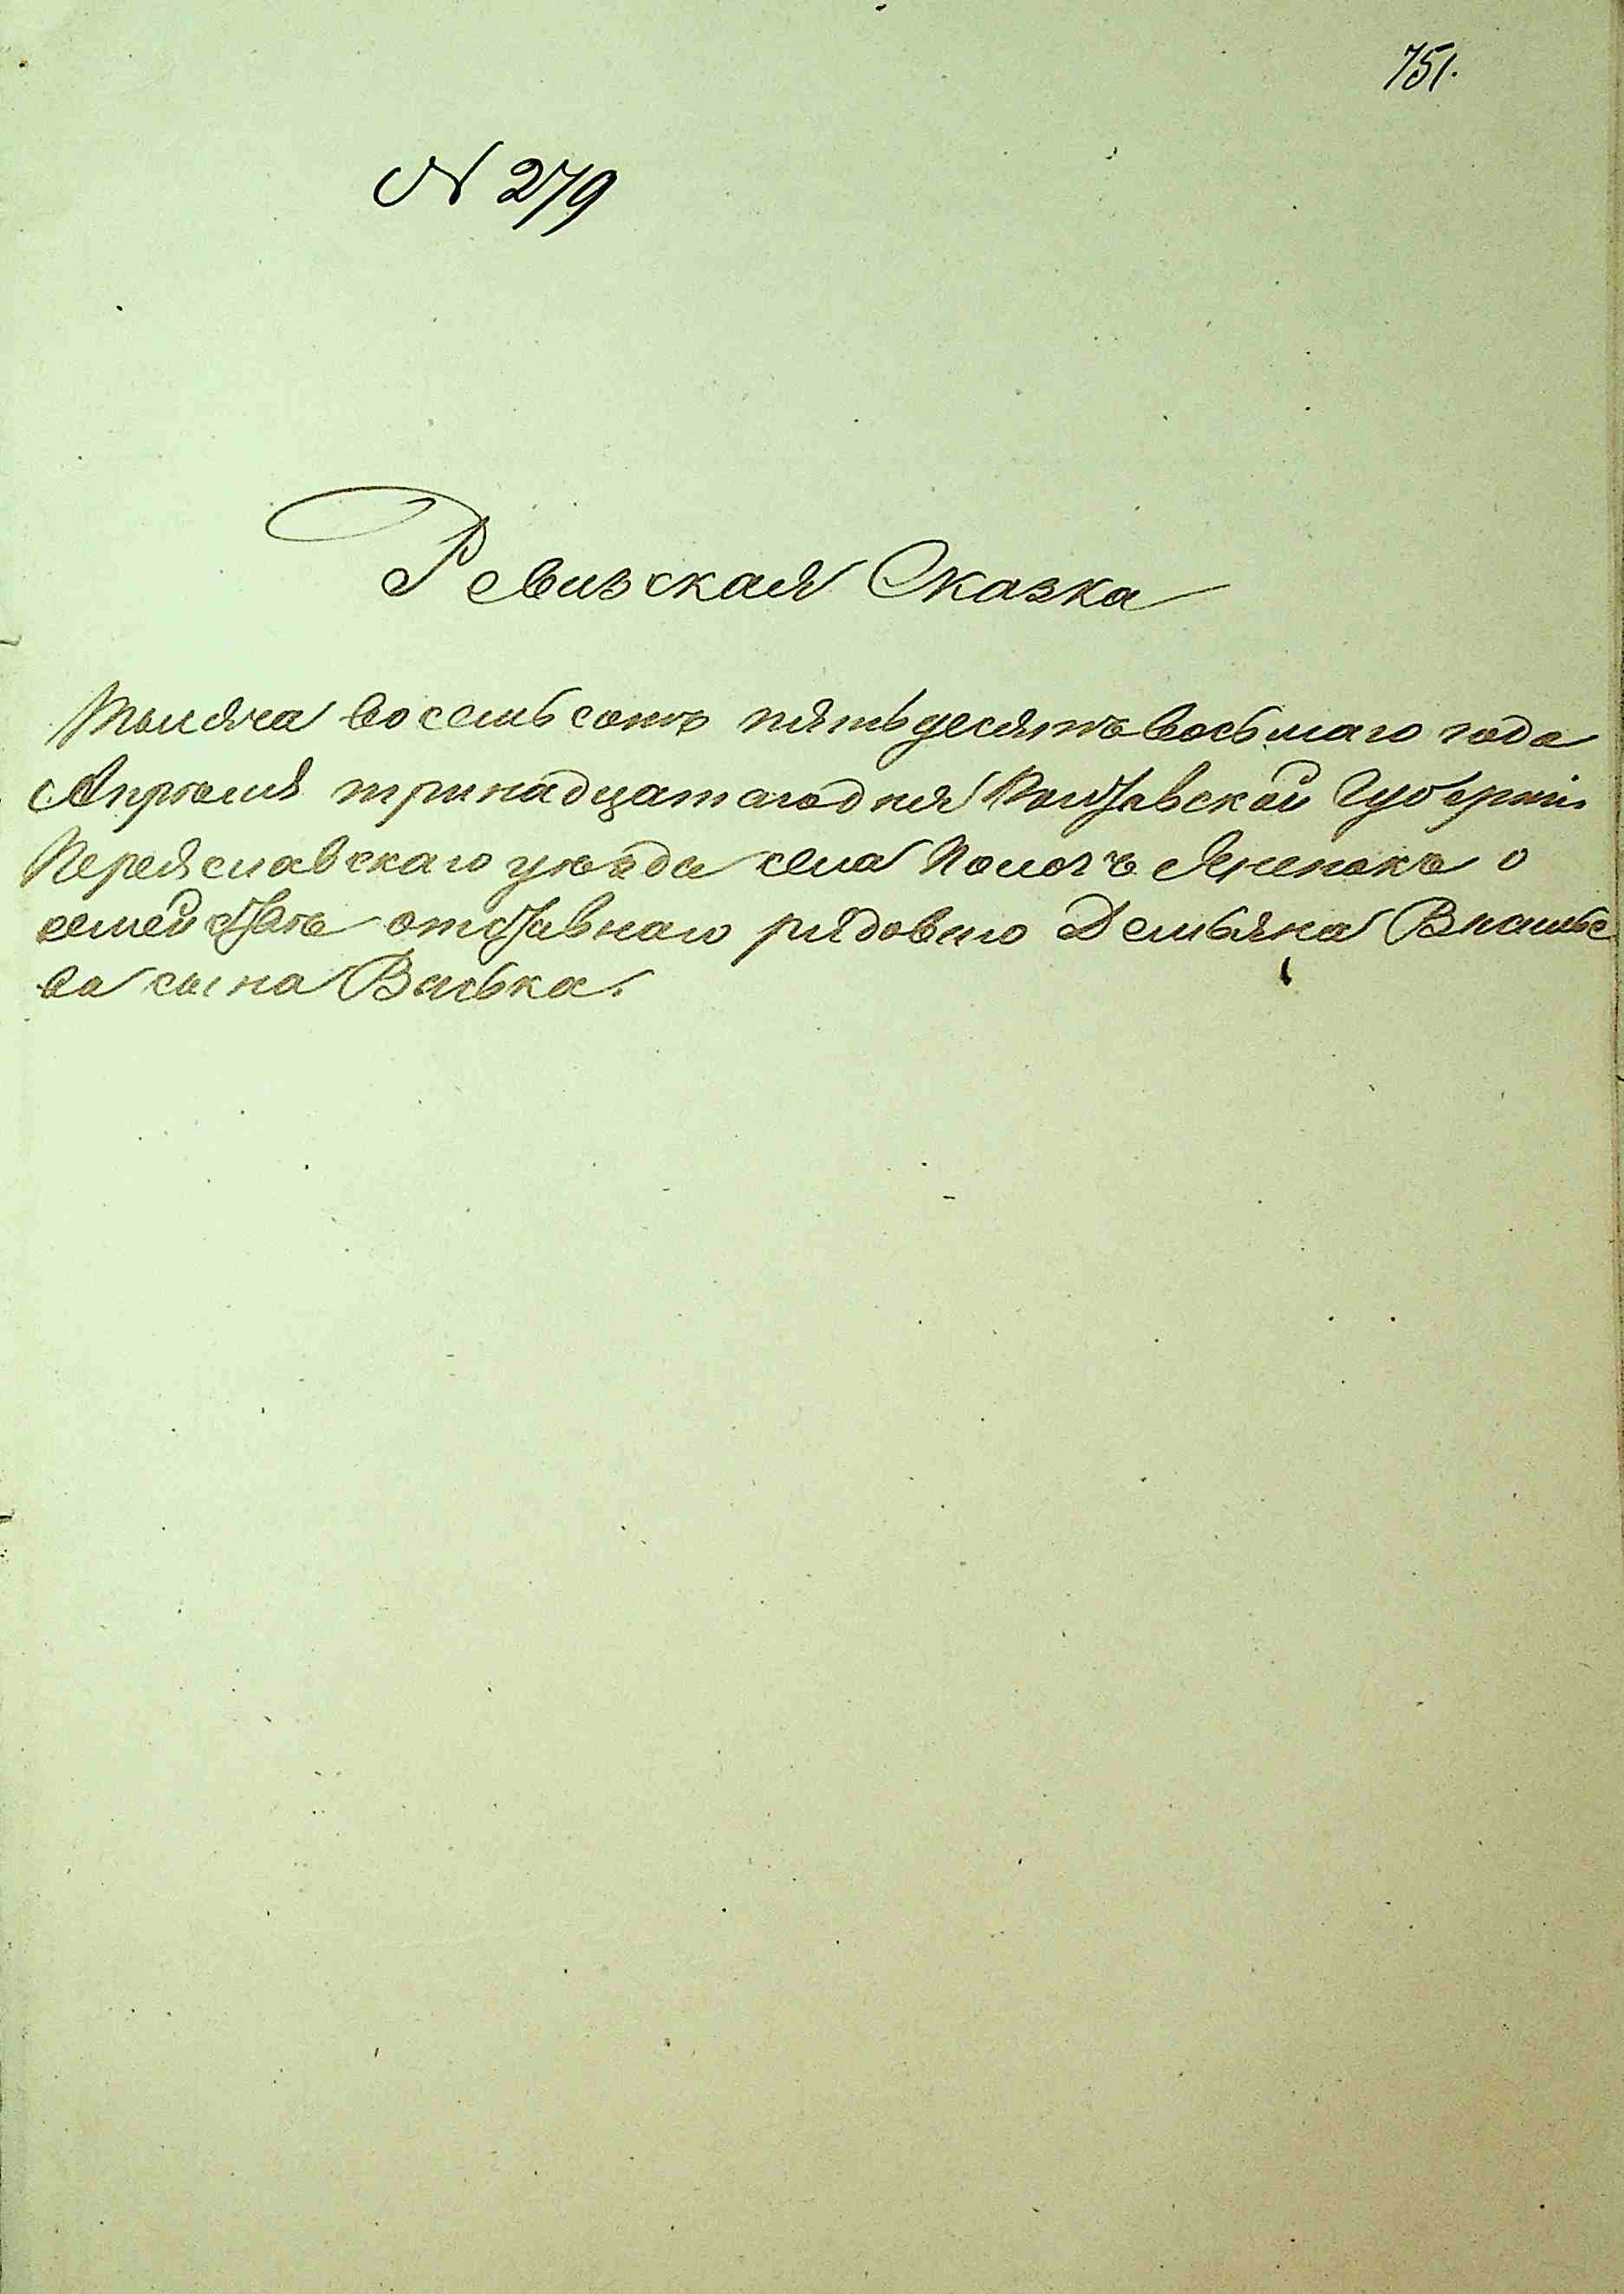 751.
N 279
Ревизская Сказка
Тысяча восемьсотъ пятьдесятъ восьмаго года
Апрѣля тринадцатагодня Полтавской Губерніи
Переяславскаго уѣзда села Пологъ Яненокъ о
семействѣ отставнаго рядоваго Демьяна
ва сына Вовка.